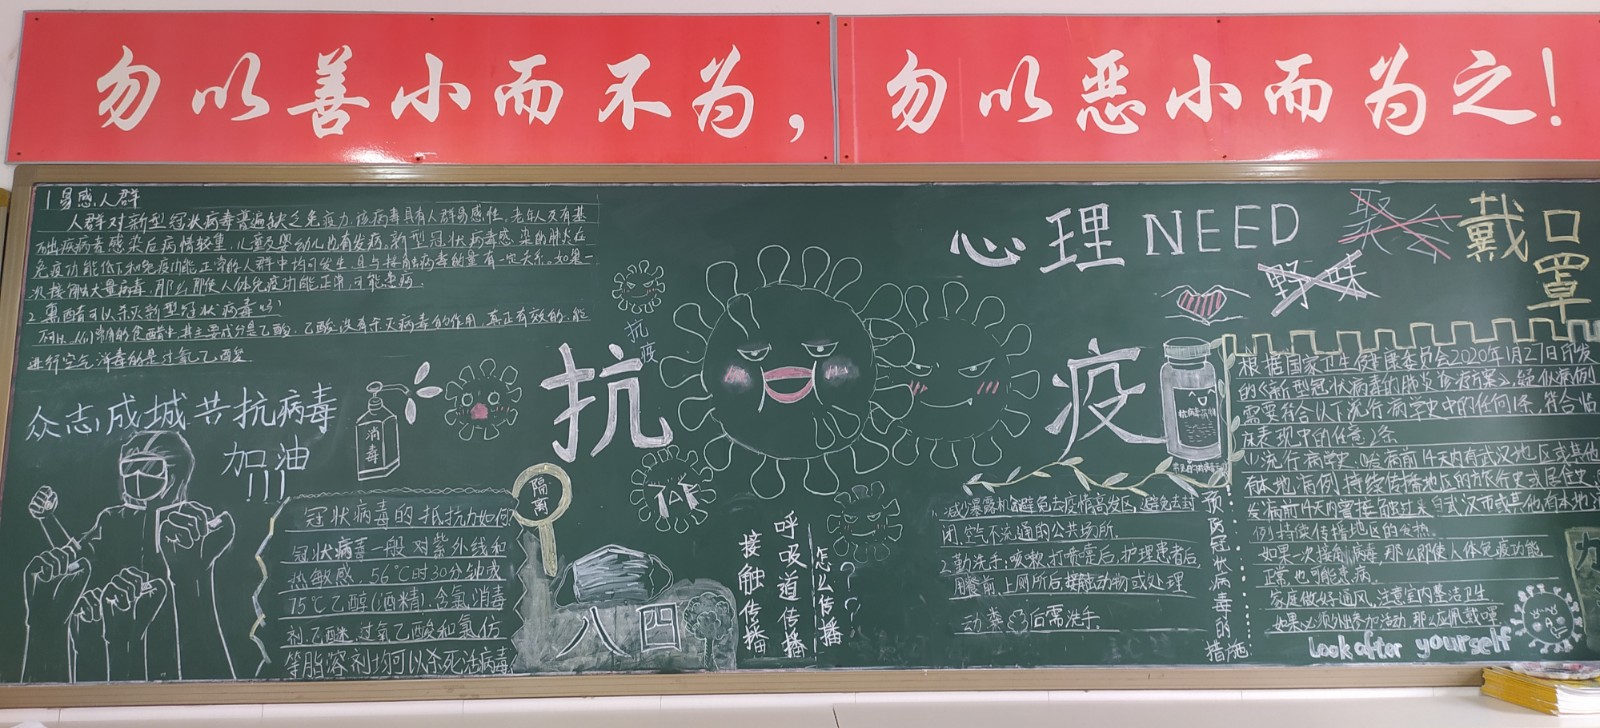 勿以善小而不为，勿以恶小而为之！
1 易感人群
人群对新型冠状病毒普遍缺乏免疫力,该病毒具有人群易感性,老年人及有基
础疾病者感染后病情较重,儿童及婴幼儿也有发病。新型冠状病毒感染的肺炎在
免疫功能低下和免疫功能正常的人群中均可发生,且与接触病毒的量有一定关系。如果一
次接触大量病毒,那么即使人体免疫功能正常,可能患病.
2. 熏醋可以杀灭新型冠状病毒吗?
不可以,人们常用的食醋中,其主要成分是乙酸,乙酸没有杀灭病毒的作用,真正有效的,能
进行空气消毒的是过氧乙酸
众志成城 共抗病毒
加油
!!!
消毒
抗疫
抗
疫
隔离
冠状病毒的抵抗力如何
冠状病毒一般对紫外线和
热敏感,56℃时30分钟或
75℃乙醇(酒精),含氯消毒
剂,乙醚,过氧乙酸和氯仿
等脂溶剂均可以杀死活病毒
八四
怎么传播???
呼吸道传播
接触传播
心理 NEED
聚会
野味
戴口罩
1.减少暴露机会避免去疫情高发区,避免去封
闭,空气不流通的公共场所.
2.勤洗手:咳嗽,打喷嚏后,护理患者后,
用餐前,上厕所后接触动物或处理
动粪后需洗手
预防冠状病毒的措施:
根据国家卫生健康委员会2020年1月27日印发
的《新型冠状病毒的肺炎诊疗方案》,疑似病例
需要符合以下流行病学史中的任何1条,符合临
床表现中的任意2条
1)流行病学史:发病前14天内有武汉地区或其他
有本地病例持续传播地区的旅行史或居住史,
发病前14天内曾接触过来自武汉市或其他有本地
例持续传播地区的发热
如果一次接触病毒,那么即使人体免疫功能
正常,也可能患病.
家庭做好通风,注意室内整洁卫生
如果必须外出参加活动,那么应佩戴口罩
Look after yourself